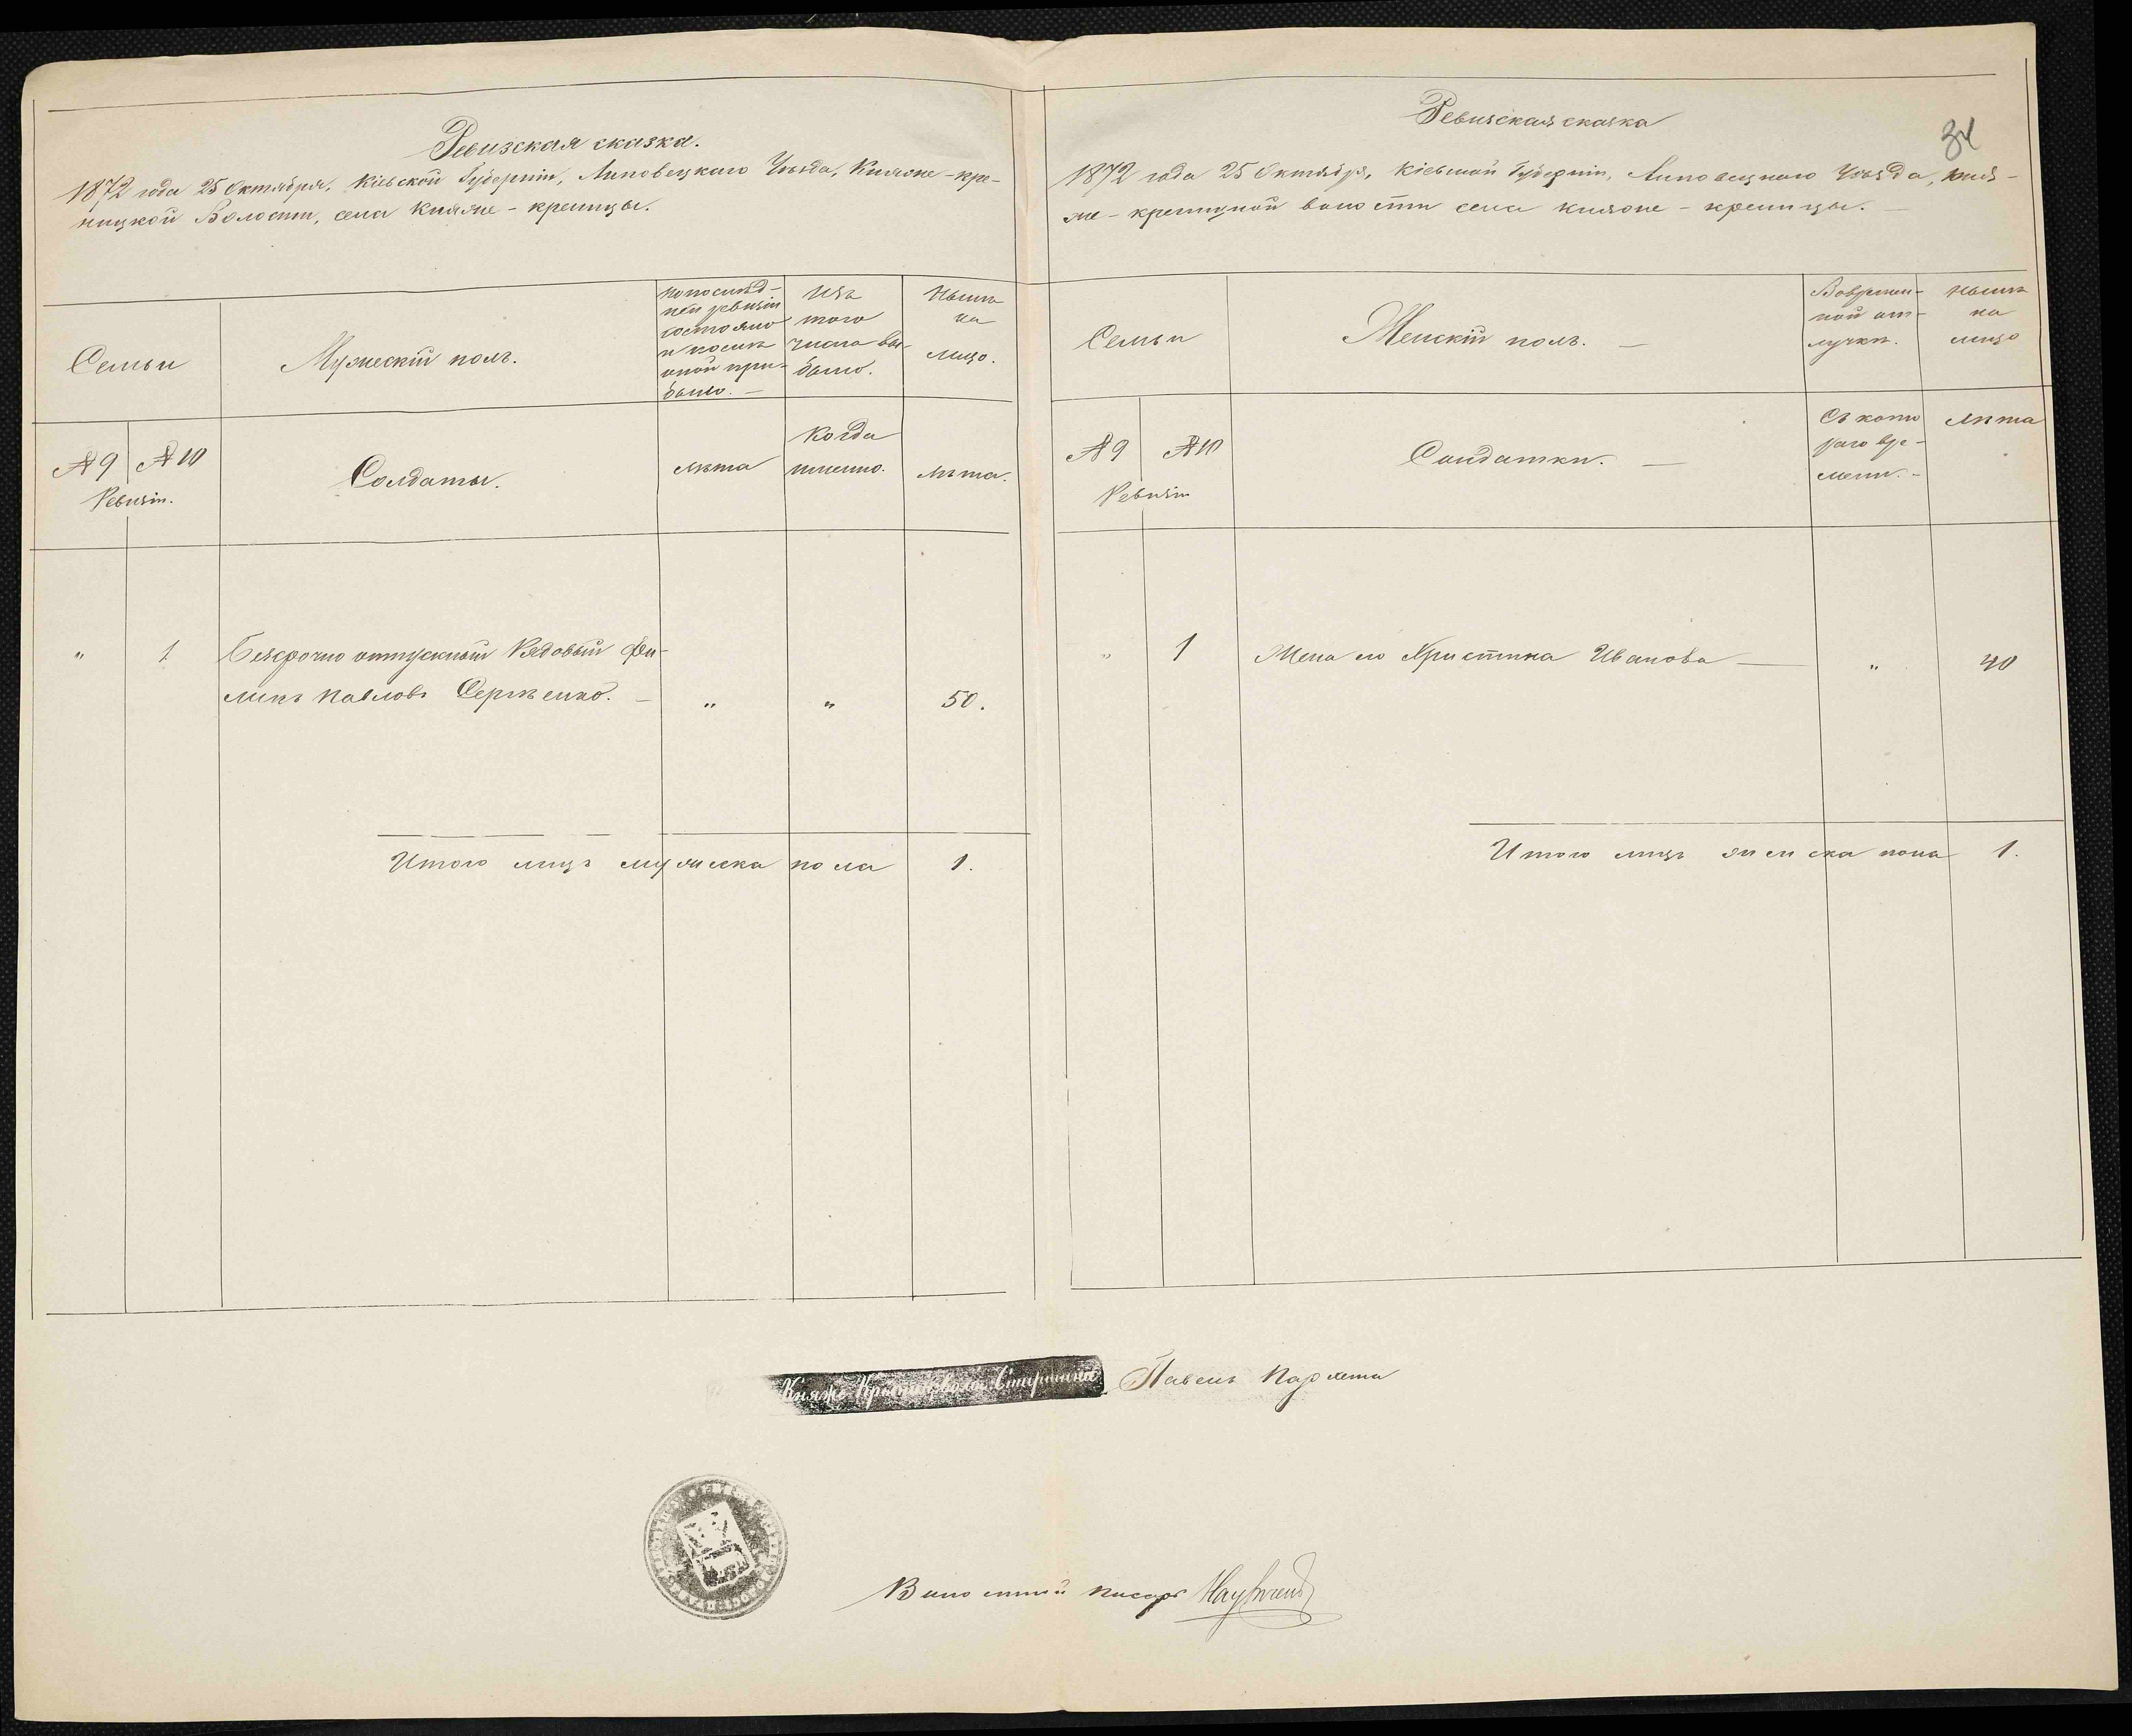 Ревизская сказка.
1872 года 25 Октября, Кіевской Губерніи, Липовецкаго Уѣзда, Княже-кре-
ницкой Волости, села Княже-креницы.
Семьи
Мужескій полъ.
По послѣд-
ней ревизіи
состояло
и послѣ
оной при-
было. —
Изъ
того
числа вы-
было.
Нынѣ
на
лицо.
№ 9 № 10
Ревизіи.
Солдаты.
лѣта
Когда
именно.
лѣта.
" 1 Безсрочно отпускный Рядовый Фи-
липъ Павловъ Сергѣенко. — " " 50.
Итого лицъ мужеска пола 1.
Ревизская сказка
34
1872 года 25 Октября, Кіевской Губерніи, Липовецкаго Уѣзда, Кня-
же-креницкой волости села княже-креницы. —
Семьи
Женскій полъ. —
Вовремен-
ной от-
лучкѣ.
Нынѣ
на
лицо
№ 9 № 10
Ревизіи
Солдатки. —
Съ кото
раго вре-
мени. -
Лѣта
" 1 Жена его Христина Иванова — " 40
Итого лицъ женска пола 1.
Княже-Крыниц. волос. Старшина Павелъ
Волостной писарь